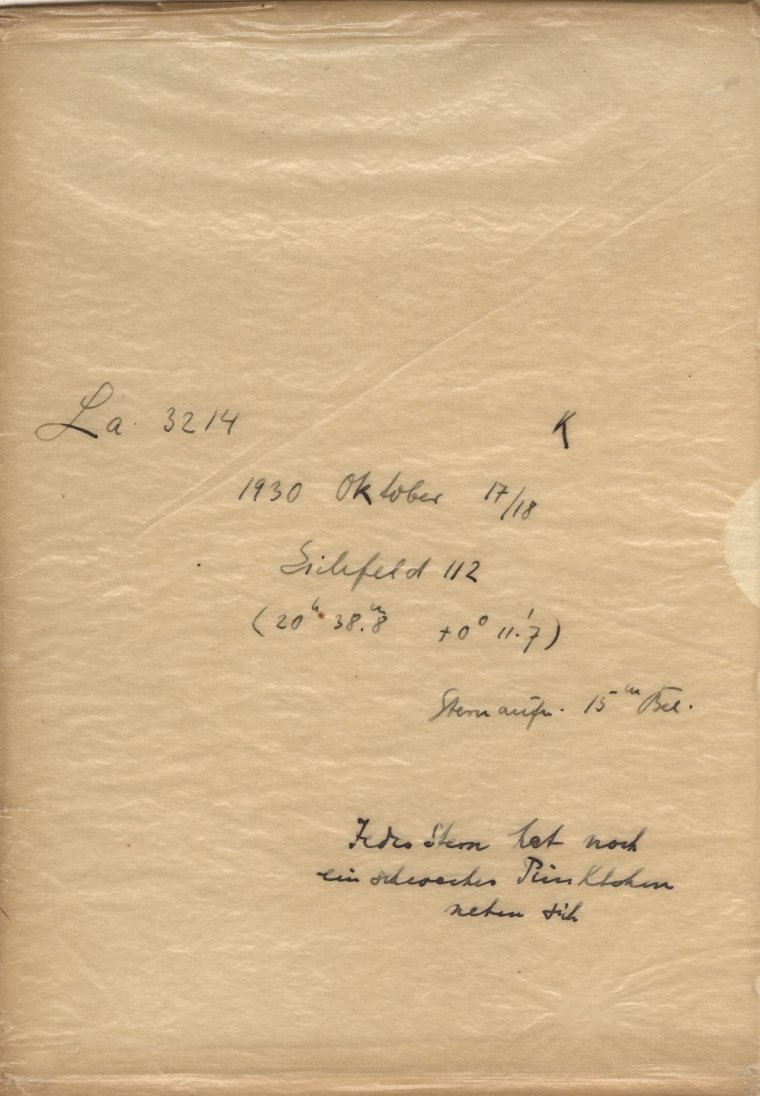 La 3214 K
1930 Oktober 17/18
Eichfeld 112
(20ʰ 38.ᵐ8 +0° 11.'7)
Sternaufn. 15ᵐ Bel.
Jeder Stern hat noch
ein schwaches Pünktchen
neben sich